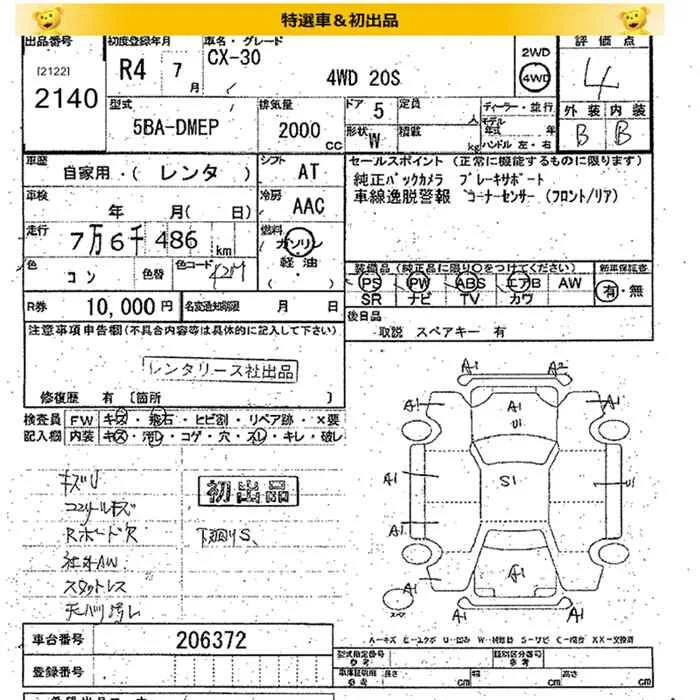 特選車＆初出品
出品番号
[2122]
2140
初度登録年月
R4 7 月
車名・グレード
CX-30
4WD 20S
2WD
4WD
評価点
4
外装 内装
B B
型式
5BA-DMEP
排気量
2000 CC
ドア 5
形状 W
定員 人
積載 kg
ディーラー・並行
モデル年式 年
ハンドル 左・右
車歴
自家用・( レンタ )
シフト
AT
車検
年 月( 日)
冷房
AAC
走行
7万6千486 km
燃料
ガソリン
軽・油
( )
色
コン
色替
色コード
セールスポイント (正常に機能するものに限ります)
純正バックカメラ ブレーキサポート
車線逸脱警報 コーナーセンサー (フロント/リア)
装備品(純正品に限り○をつけてください)
PS PW ABS エアB AW
SR ナビ TV カワ
新車保証書
有・無
R券 10,000円
名変通知期限 月 日
後日品
取説 スペアキー 有
注意事項申告欄(不具合内容等は具体的に記入して下さい)
レンタリース社出品
修復歴 有 〔箇所 〕
検査員
記入欄
FW キズ・飛石・ヒビ割・リペア跡・×要
内装 キズ・汚レ・コゲ・穴・スレ・キレ・破レ
キズU
初出品
コスリキズ
Rボード穴
下廻りS、
社外AW
スタットレス
天バリ汚レ
A1 A2
A1 A1 A1
U1
A1 S1 U1
A1
A1 A1 A1
A1 A1
スペア
A―キズ E―エクボ U―凹み W―補修跡 S―サビ C―腐食 XX―交換済
車台番号 206372
登録番号
型式指定番号
参考
類別区分番号
参考
車庫証明用
参考
長さ cm 幅 cm 高さ cm